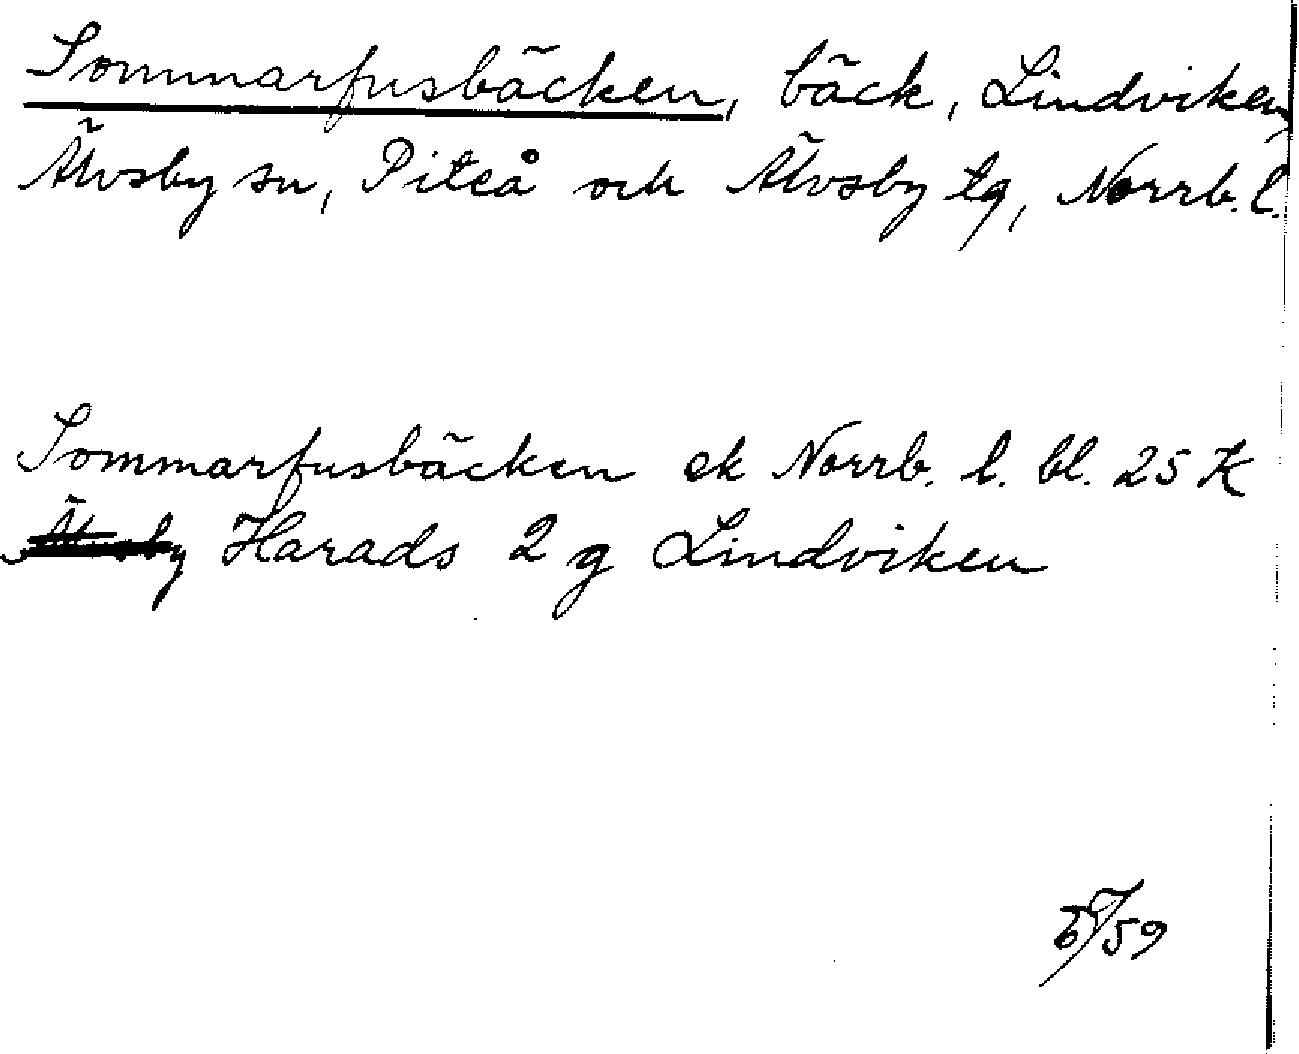 Sommarfusbäcken, bäck, Lindviken,
Älvsby sn, Piteå och Älvsby tg, Norrb. l.
Sommarfusbäcken ek Norrb. l. bl. 25 K
Älvsby Harads 2 g Lindviken